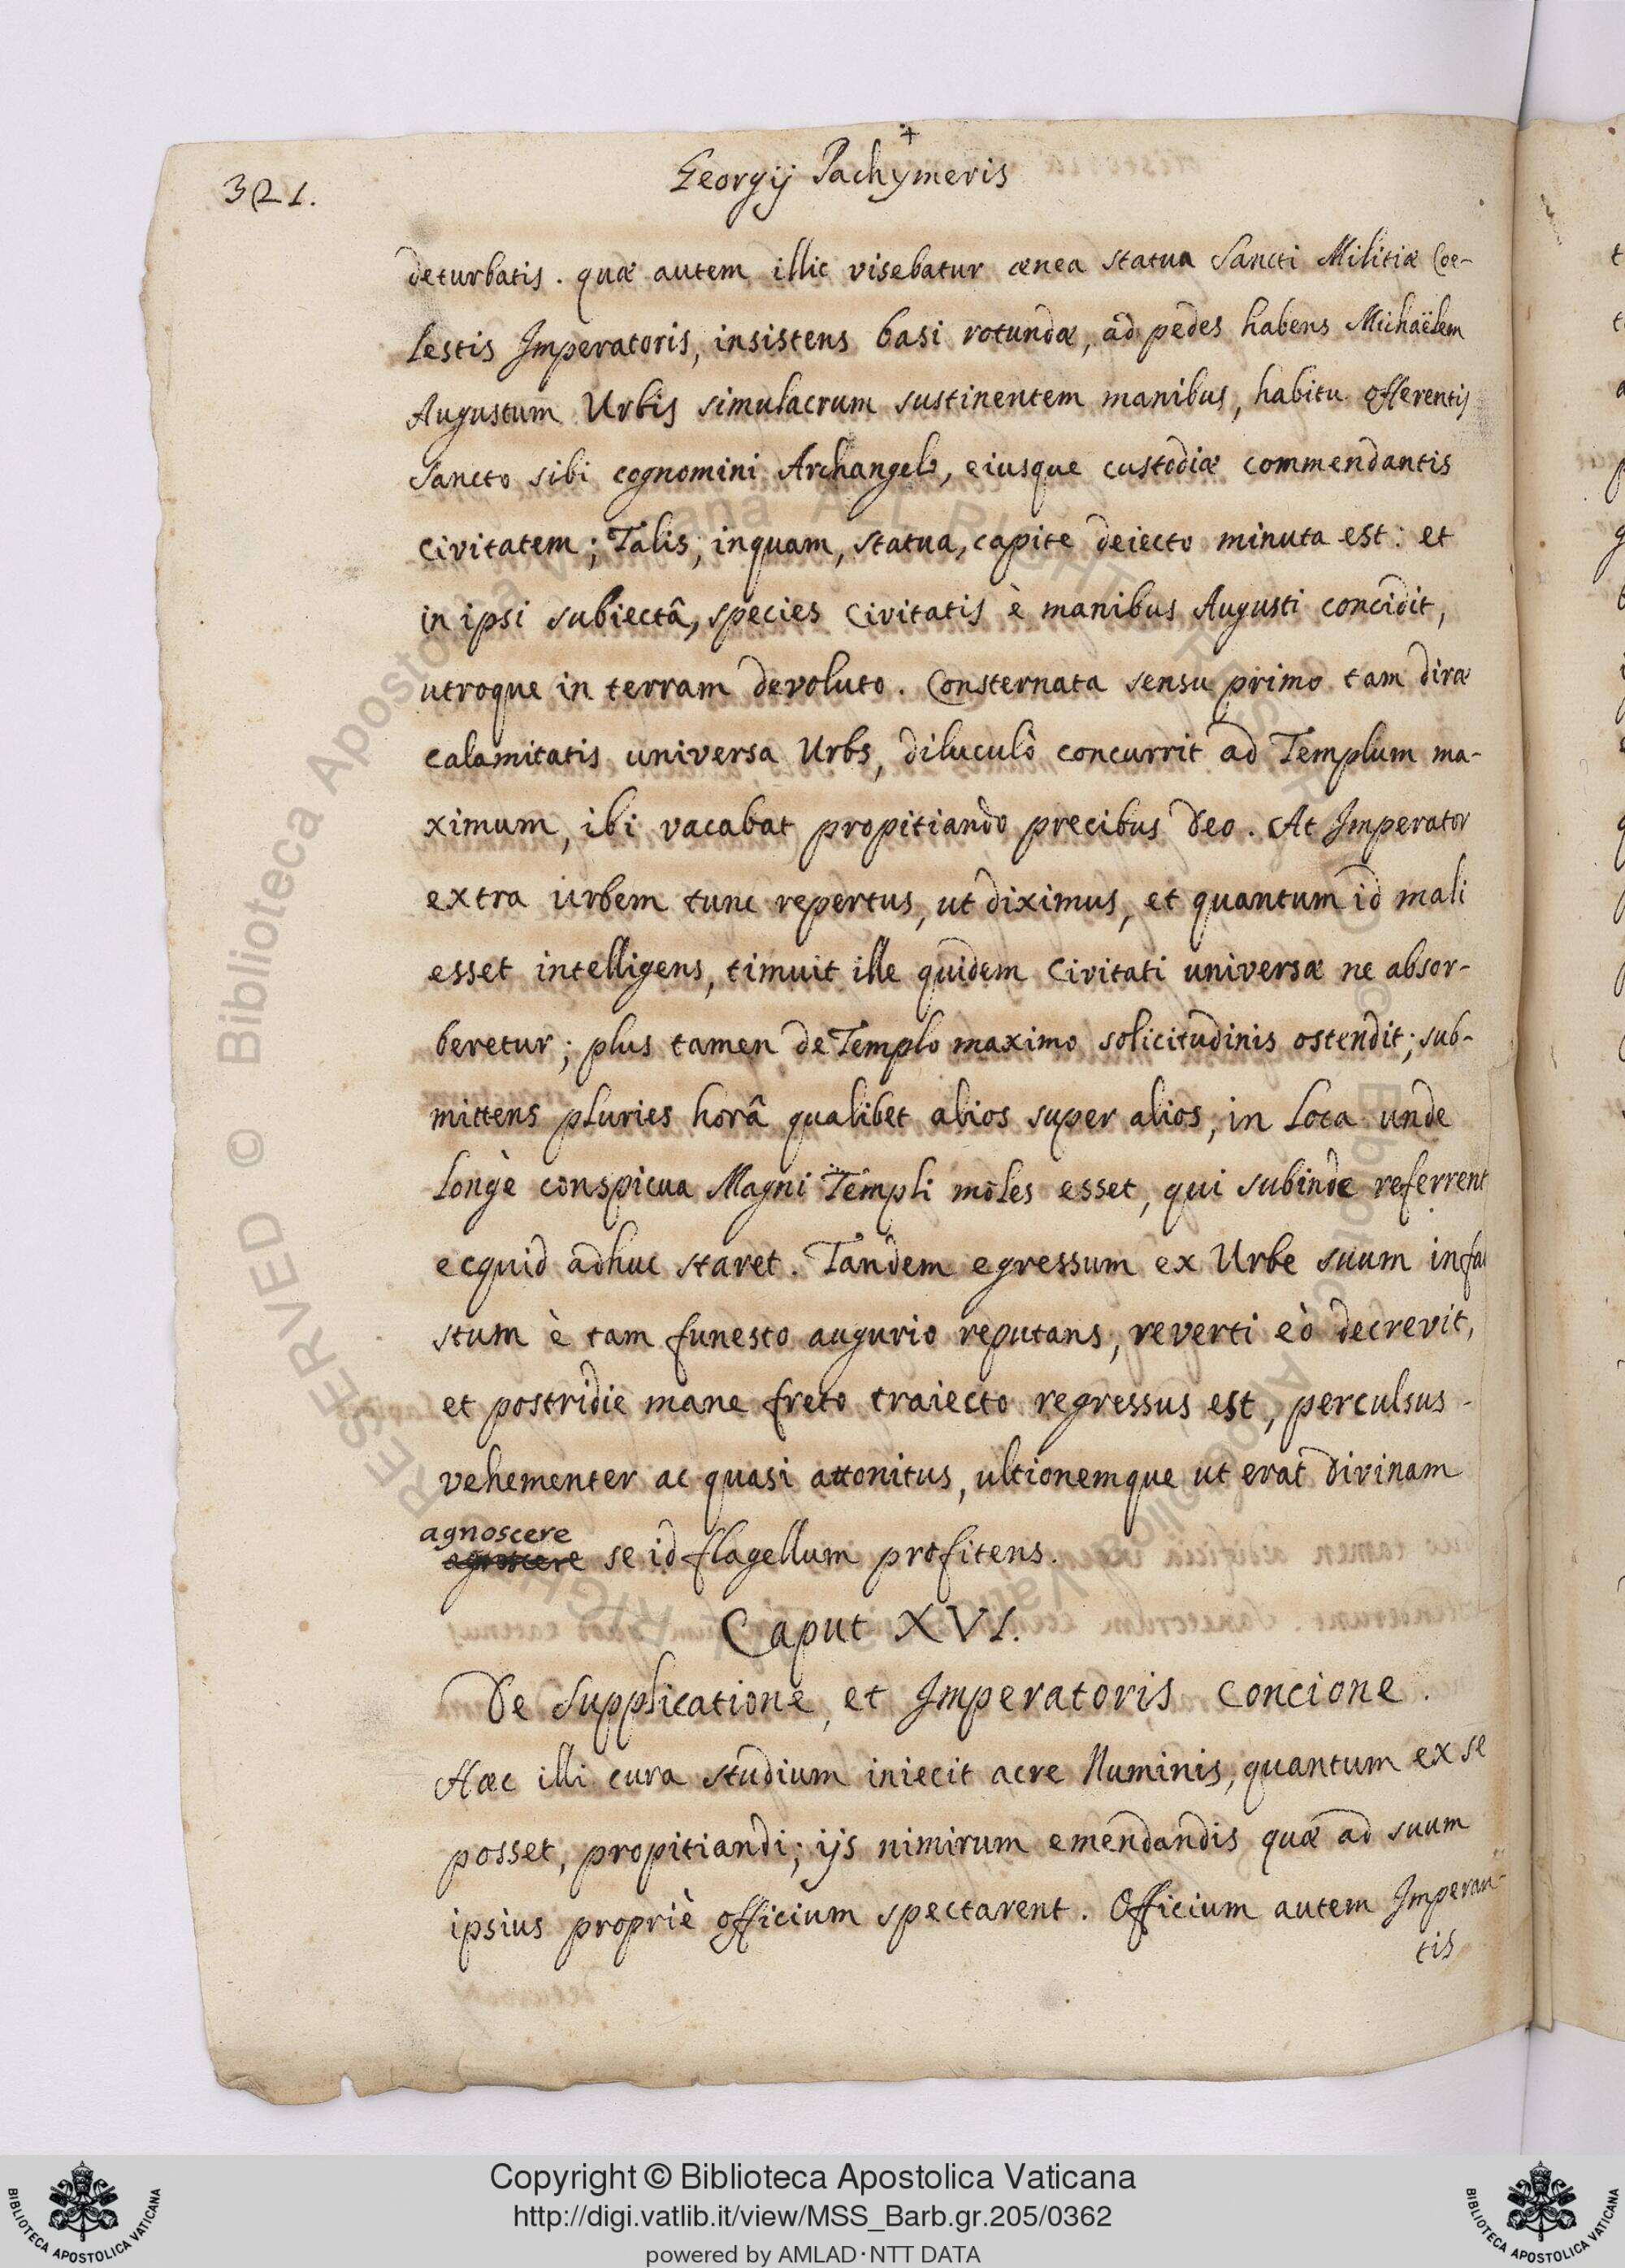 321.
Georgij Pachymeris
deturbatis. quæ autem illic visebatur ænea statua Sancti Militiæ Coe-
lestis Imperatoris, insistens basi rotundæ, ad pedes habens Michaëlem
Augustum Urbis simulacrum sustinentem manibus, habitu offerentis
Sancto sibi cognomini Archangelo, eiusque custodiæ commendantis
civitatem; Talis, inquam, statua, capite deiecto minuta est: et
in ipsi subiectâ, species Civitatis è manibus Augusti concidit,
utroque in terram devoluto. Consternata sensu primo tam diræ
calamitatis universa Urbs, diluculò concurrit ad Templum ma-
ximum, ibi vacabat propitiando precibus Deo. At Imperator
extra urbem tunc repertus, ut diximus, et quantum id mali
esset intelligens, timuit ille quidem Civitati universæ ne absor-
beretur; plus tamen de Templo maximo solicitudinis ostendit; sub-
mittens pluries horâ qualibet alios super alios, in Loca unde
longè conspicua Magni Templi moles esset, qui subinde referrent
ecquid adhuc staret. Tandem egressum ex Urbe suum infau
stum è tam funesto augurio reputans, reverti eò decrevit,
et postridie mane freto traiecto regressus est, perculsus
vehementer ac quasi attonitus, ultionemque ut erat divinam
agnoscere
agnoscere se id flagellum profitens.
Caput XVI.
De Supplicatione, et Imperatoris concione.
Hæc illi cura studium iniecit acre Numinis, quantum ex se
posset, propitiandi; ijs nimirum emendandis quæ ad suum
ipsius propriè officium spectarent. Officium autem Imperan-
tis
© Biblioteca Apostolica Vaticana ALL RIGHTS RESERVED © Biblioteca Apostolica Vaticana ALL RIGHTS RESERVED
Copyright © Biblioteca Apostolica Vaticana
http://digi.vatlib.it/view/MSS_Barb.gr.205/0362
powered by AMLAD·NTT DATA
BIBLIOTECA APOSTOLICA VATICANA
BIBLIOTECA APOSTOLICA VATICANA